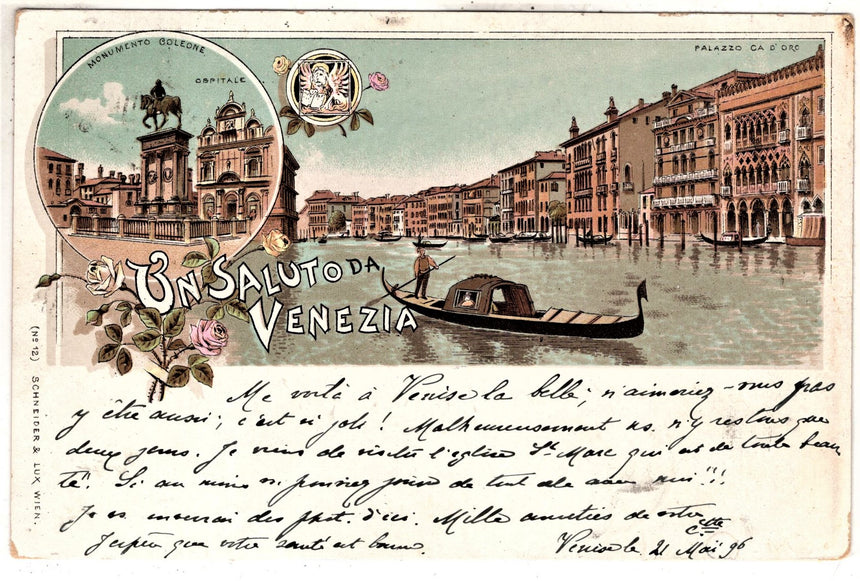 MONUMENTO COLEONE
OSPITALE
PALAZZO CA D'ORO
UN SALUTO DA
VENEZIA
(Nº 12) SCHNEIDER & LUX, WIEN.
Me voilà à Venise la belle; n'aimeriez-vous pas
y être aussi; c'est si joli! Malheureusement ns. n'y restons que
deux jours. Je viens de visiter l'église St. Marc qui est de toute beau
té! Si au moins vs. pouviez jouir de tout cela avec moi"!!
Je vs. enverrai des phot. d'ici. Mille amitiés de votre
J'espère que votre santé est bonne. Venise le 21 Mai 96